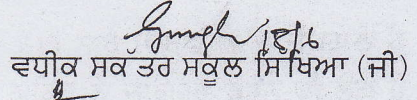 18/6
ਵਧੀਕ ਸਕੱਤਰ ਸਕੂਲ ਸਿੱਖਿਆ (ਜੀ)